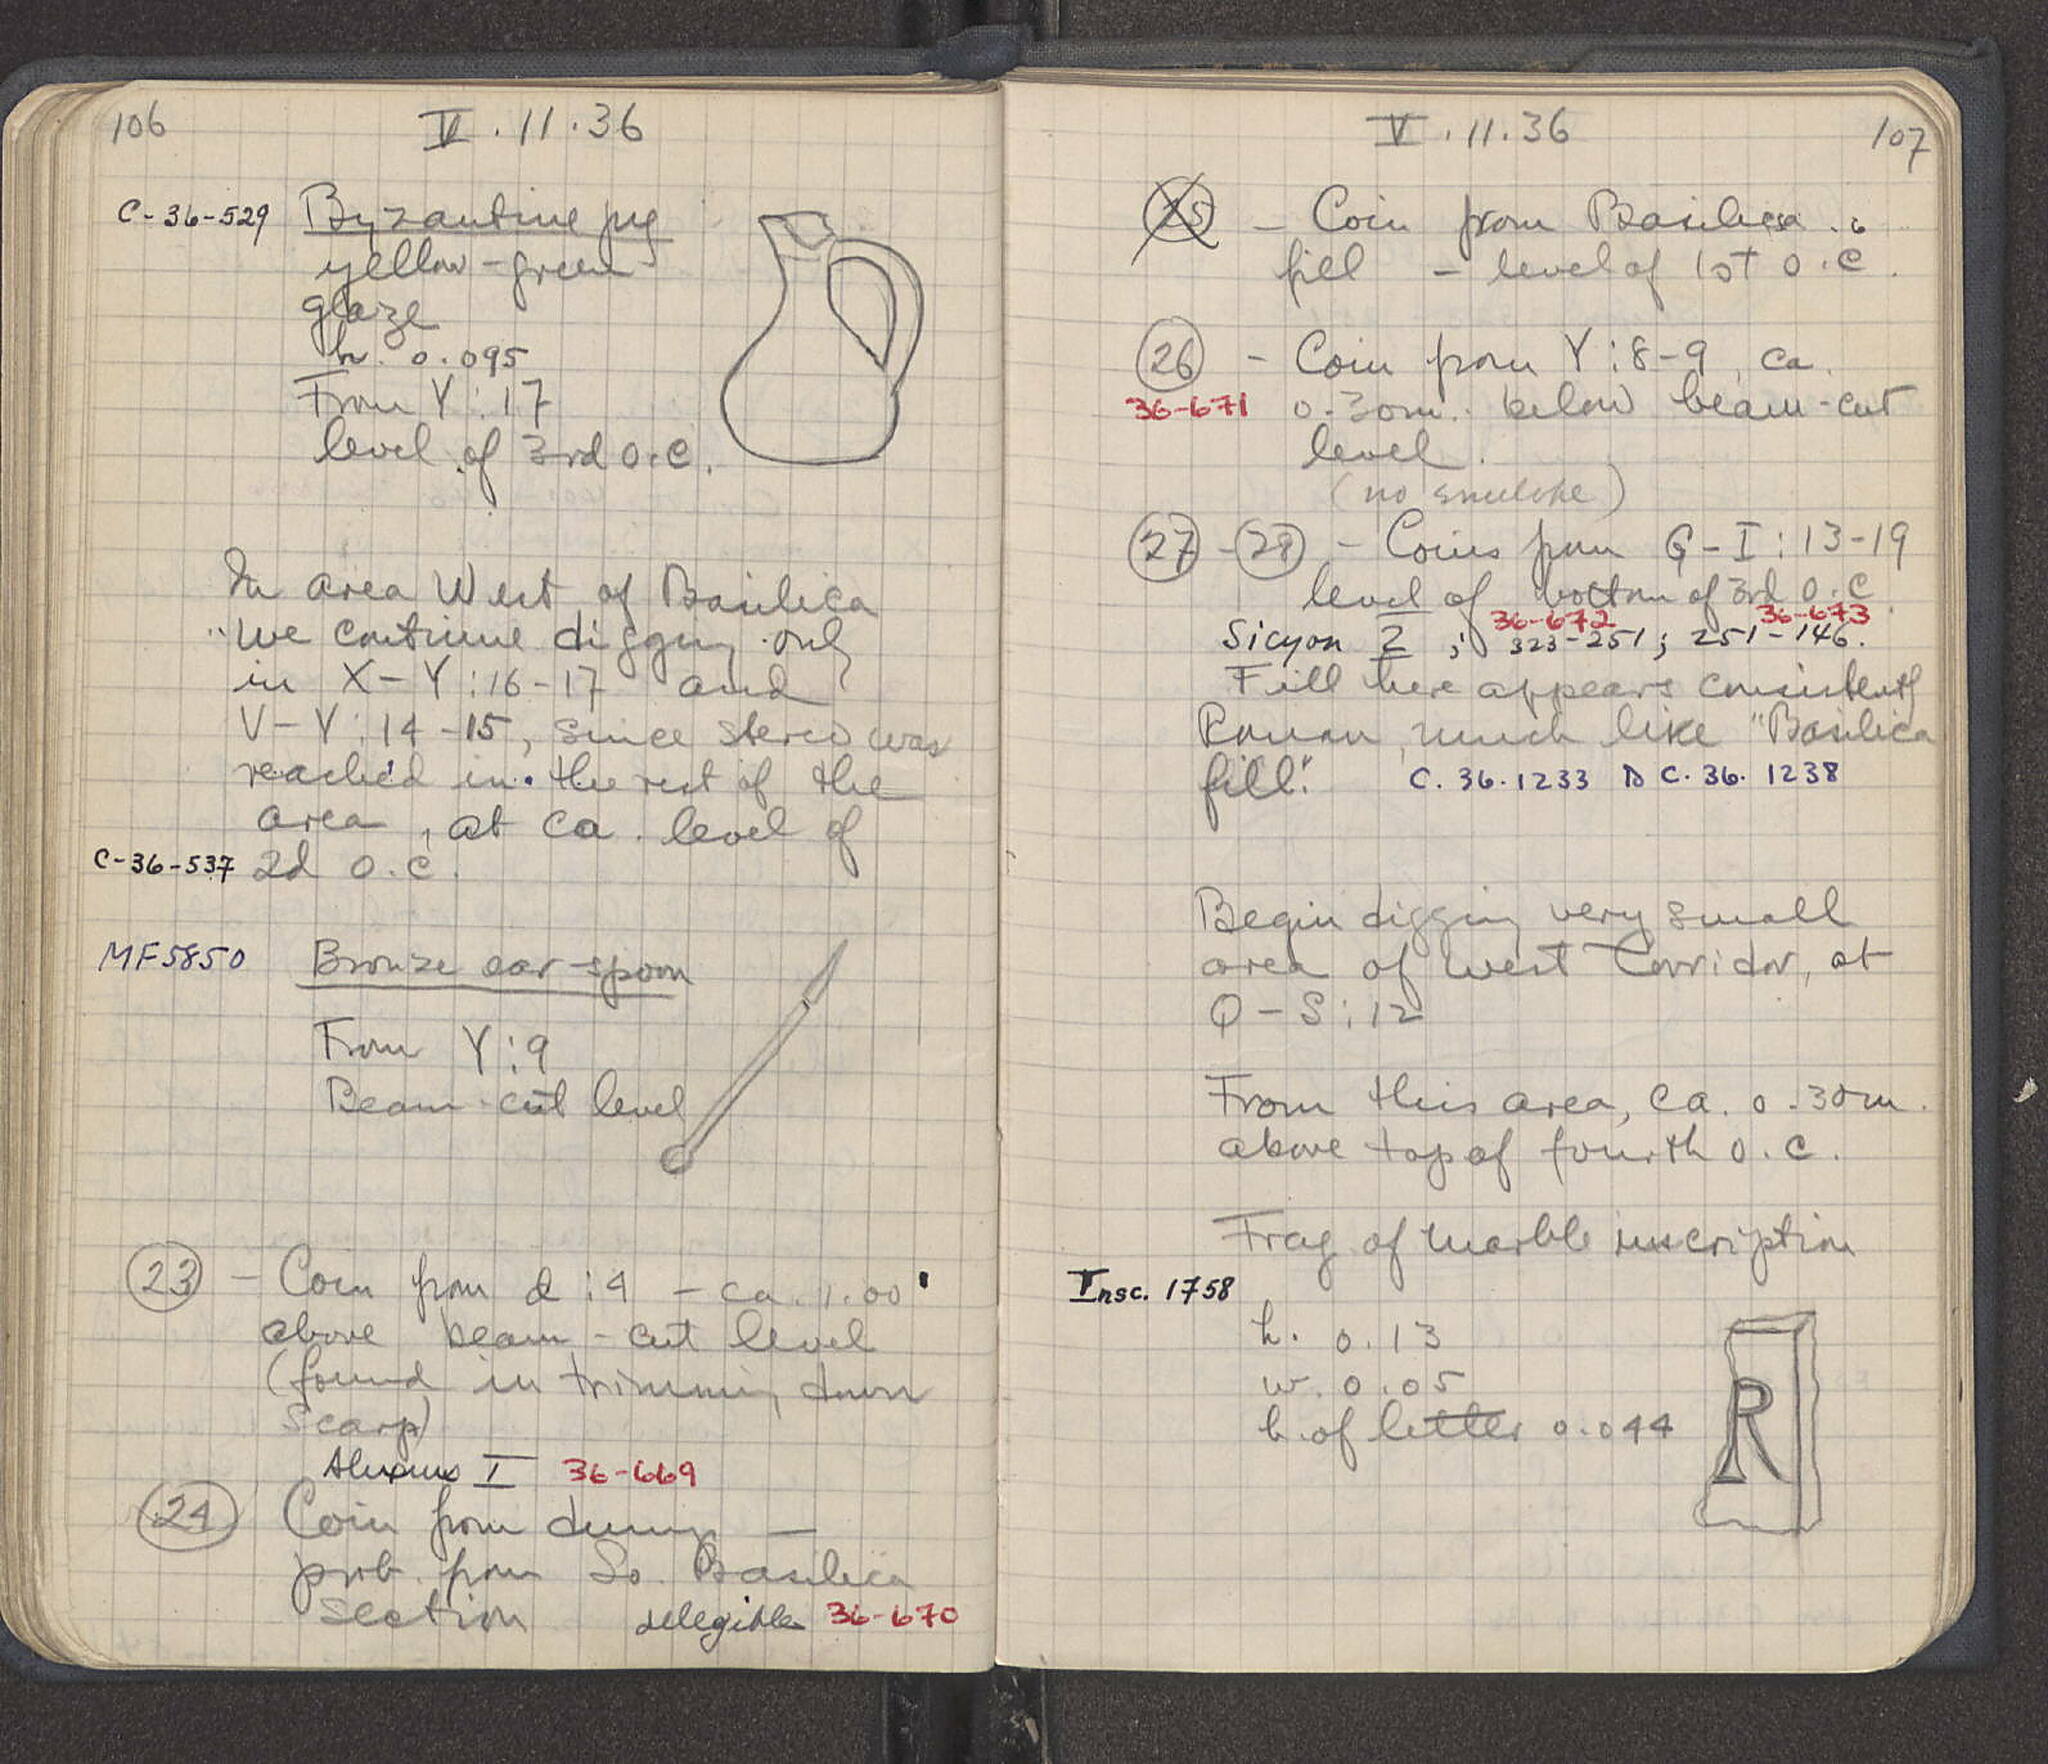 106
V . 11 . 36
C-36-529 Byzantine jug
yellow-green
glaze
h. 0.095
From Y : 17
level of 3rd O.C.
In area West of Basilica
we continue digging only
in X-Y:16-17 and
V-Y:14-15, since stereo was
reached in the rest of the
area, at ca. level of
C-36-537 2d O.C.
MF5850 Bronze ear-spoon
From Y:9
Beam-cut level
23 - Coin from :4 - ca. 1.00
above beam-cut level
(found in trimming down
scarp)
Alexius I 36-669
24 Coin from dump -
prob. from So. Basilica
section illegible 36-670
V . 11 . 36
107
25 - Coin from Basilica
fill - level of 1st O.C.
26 - Coin from Y:8-9, ca.
36-671 0.30m. below beam-cut
level.
(no envelope)
27 - 28 - Coins from G-I:13-19
level of bottom of 3rd O.C.
36-672 36-673
Sicyon 2 ; 323-251; 251-146.
Fill here appears consistently
Roman, much like "Basilica
fill." C.36.1233 to C.36.1238
Begin digging very small
area of West Corridor, at
Q-S:12
From this area, ca. 0.30m.
above top of fourth O.C.
Frag of marble inscription
Insc. 1758
h. 0.13
w. 0.05
h. of letter 0.044
R